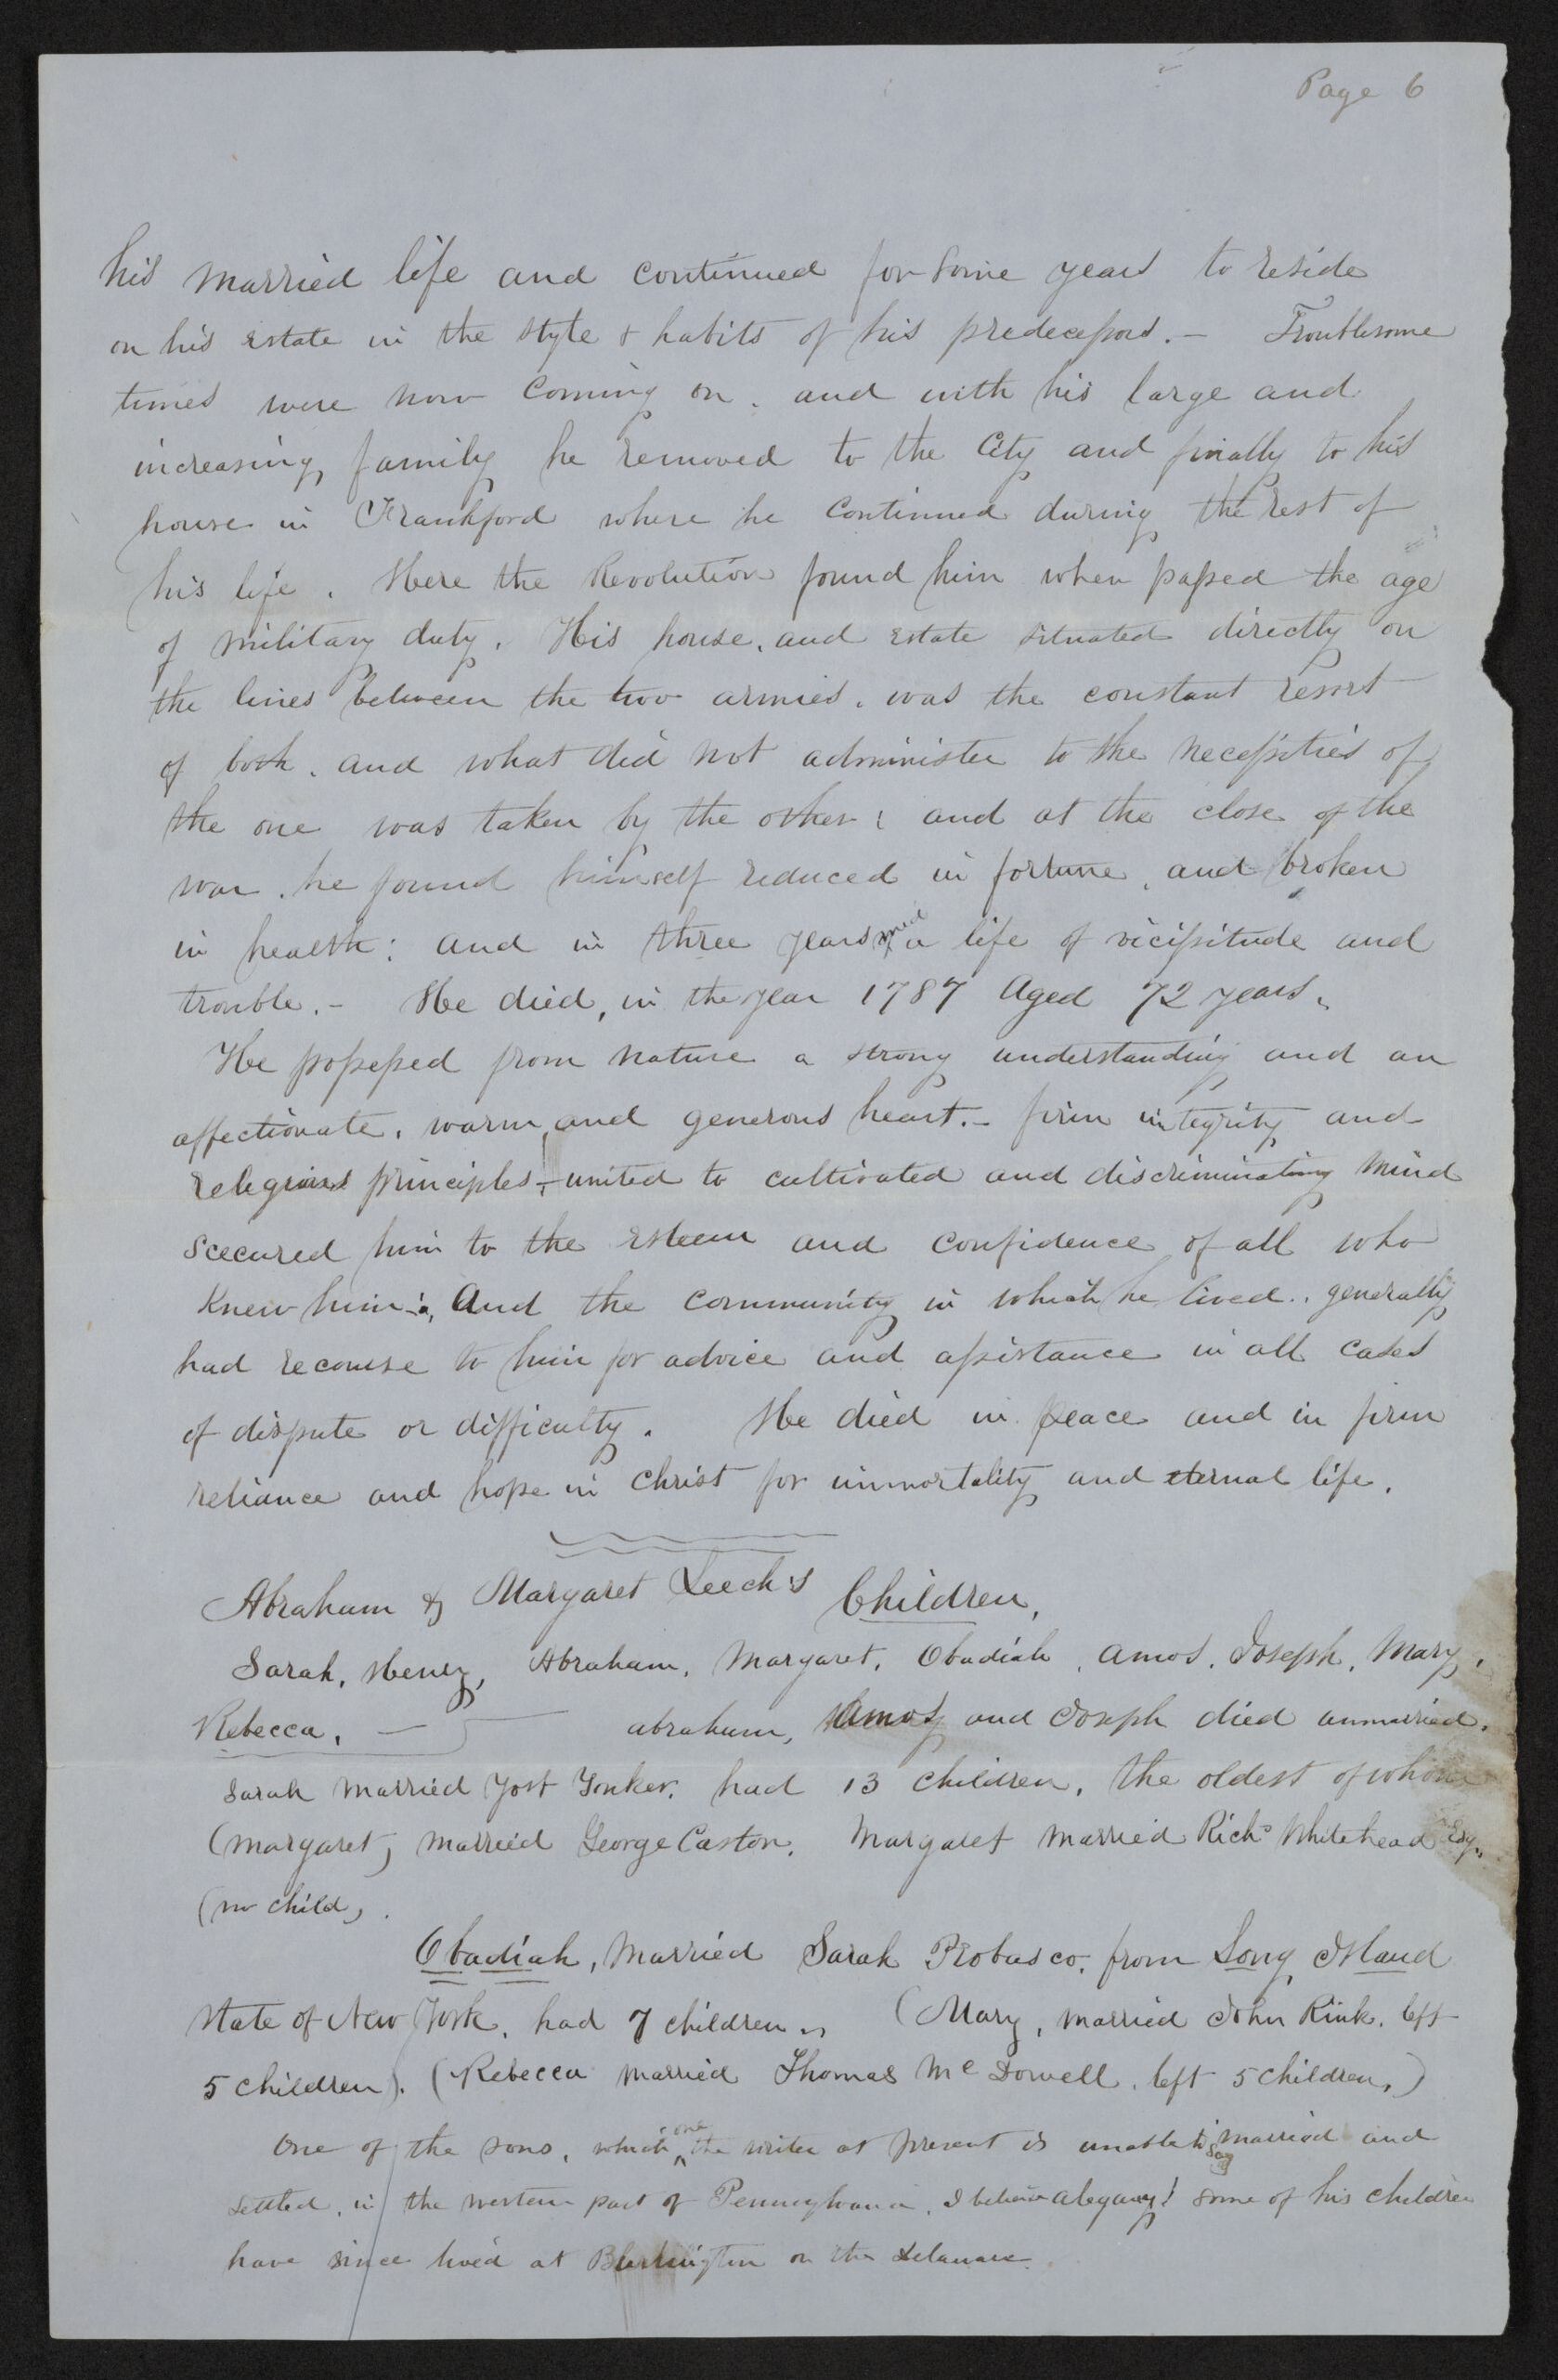 Page 6
his married life and continued for some years to reside
on his estate in the style & habits of his predecessors. - Troublesome
times were now coming on. and with his large and
increasing family he removed to the City and finally to his
house in Frankford where he continued during the rest of
his life. Here the Revolution found him when passed the age
of military duty. His house, and estate situated directly on
the lines between the two armies. was the constant resort
of both. and what did not administer to the necessities of
the one was taken by the other; and at the close of the
war. he found himself reduced in fortune, and broken
in health: and in three years a life of vicissitude and
trouble. - He died, in the year 1787 Aged 72 years.
He possessed from nature a strong understanding and an
affectionate, warm, and generous heart. - firm integrity and
relegious principles, - united to cultivated and discriminating mind
scecured him to the esteem and confidence of all who
knew him: And the community in which he lived. generally
had recourse to him for advice and assistance in all cases
of dispute or difficulty. He died in peace and in firm
reliance and hope in Christ for immortality and eternal life.
Abraham & Margaret Leech's Children.
Sarah, Henry, Abraham, Margaret, Obadiah, Amos, Joseph, Mary,
Rebecca. - abraham, Amos and Joseph died unmarried.
Sarah married Yost Yonker. had 13 children, the oldest of whom
(Margaret) married George Caston. Margaret married Richd Whitehead Esq.
(no child).
Obadiah, married Sarah Probasco. from Long Island
State of New York. had 7 children. (Mary, married John Rink. left
5 children). (Rebecca married Thomas McDowell, left 5 children.)
One of the sons, which one the writer at present is unable to say married and
settled, in the western part of Pennsylvania, I believe alegany! some of his children
have since lived at Burlington on the Delaware.